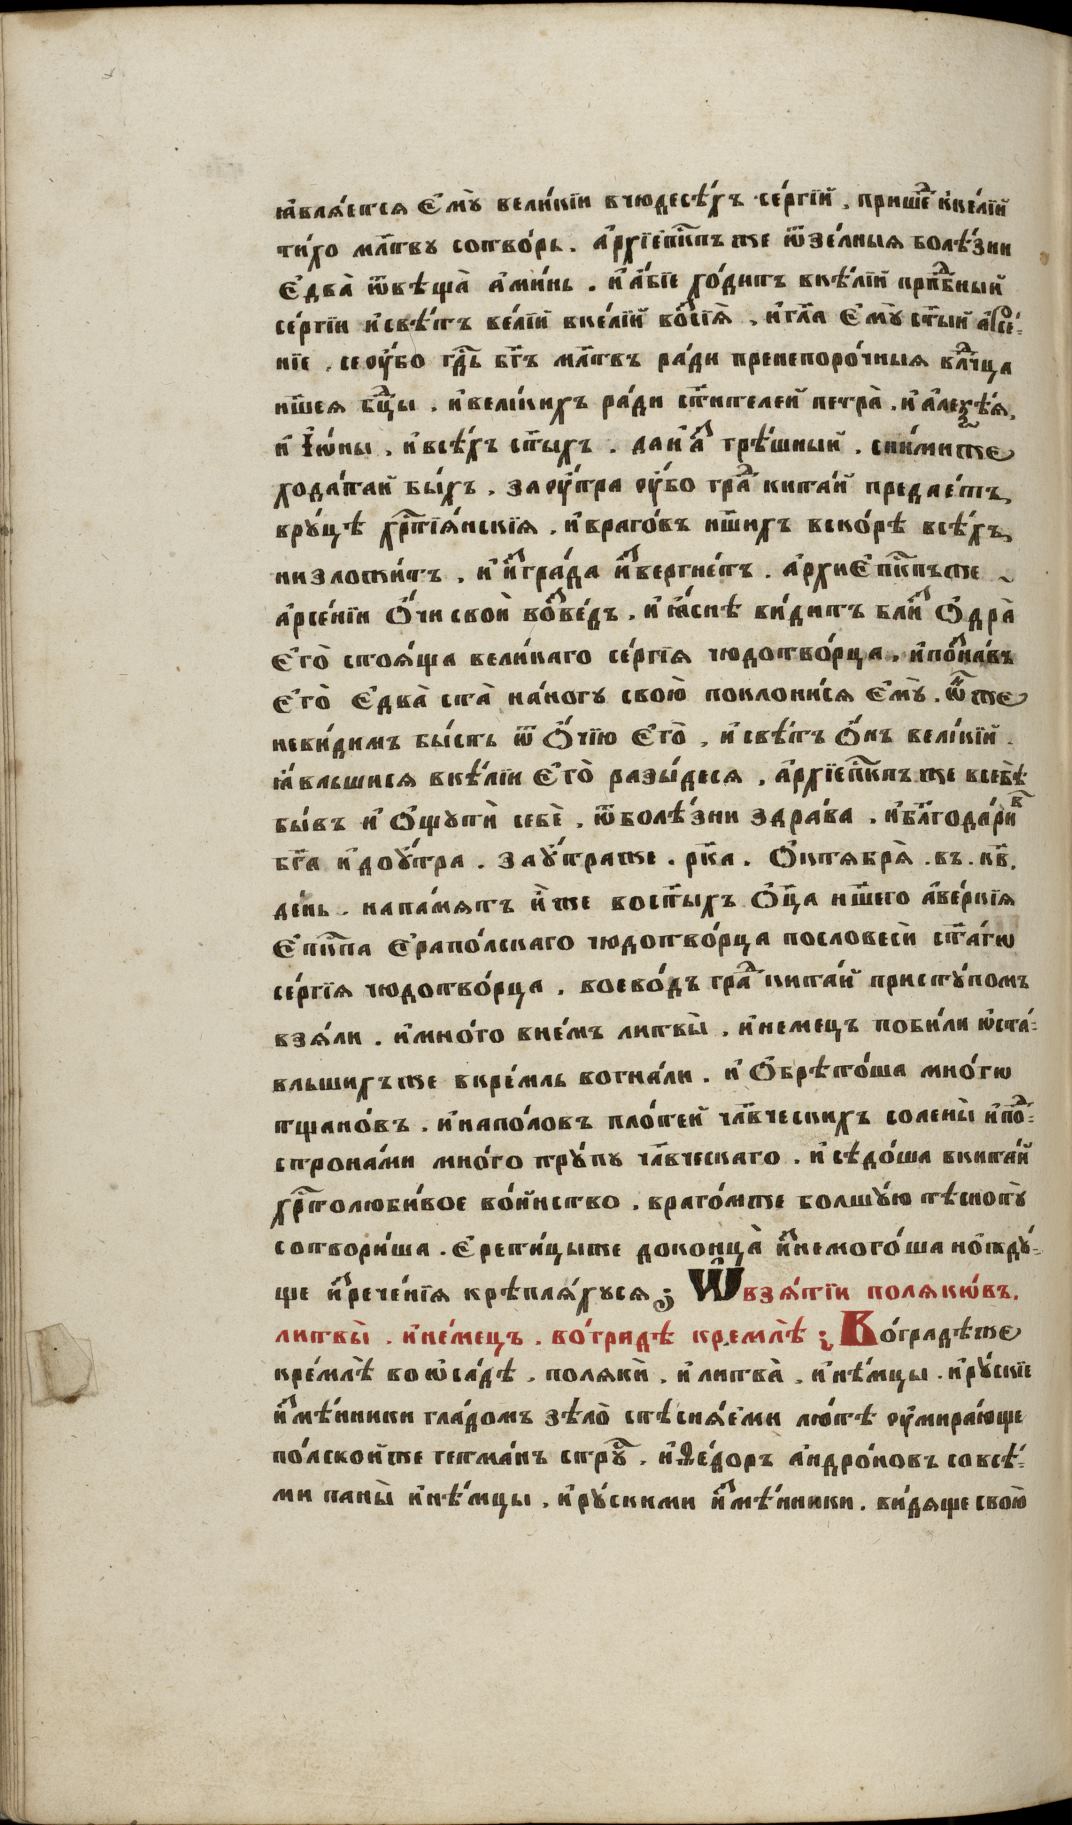 ꙗ҆влѧ́етсѧ є҆мꙋ̀ вели́кїи вчюдесѣ́хъ се́ргїй . прише́ⷣ к̾ке́лїй
ти́хо мл҃твꙋ сотво́рь . а҆рхїепⷭ҇кпъ же ѿзе́лныѧ болѣ́зни
є҆два̀ ѿвѣща̀ а҆ми́нь . и҆а҆́бїе хо́дитъ вкѣ́лїй прпⷣбный
се́ргїи и҆свѣ́тъ ве́лїй вке́лїй во́ⷭсїѧ̀ , и҆гл҃а є҆мꙋ̀ ст҃ы́й а҆рсе́-
нїе . сеоу҆́бо гдⷭ҇ь бг҃ъ мл҃твъ ра́ди пренепоро́чныѧ влⷣчца
нш҃еѧ бцⷣы . и҆вели́кихъ ра́ди ст҃ителей петра̀ . и҆а҆леѯѣ́ѧ ,
и҆ і҆ѡ́ны . и҆всѣ́хъ ст҃ы́хъ . даи҆а҆́ⷥ грѣ́шный . сни́миже
хода́тай бы́хъ . заоу҆́тра оу҆́бо граⷣ кита́й предае́тъ
врꙋ́цѣ хрⷭ҇тїѧ́нскїѧ . и҆враго́въ нш҃ихъ вско́рѣ всѣ́хъ
низложи́тъ , и҆ и҆ⷥгра́да и҆ⷥвергне́тъ . а҆рхиє҆пⷭ҇кпъже
а҆рсе́нїи ѻ҆́чи своѝ воⷥве́дъ , и҆ ꙗ҆́снѣ ви́дитъ блиⷥ ѻ҆дра̀
є҆го̀ стоѧ́ща вели́каго се́ргїѧ чюдотво́рца . и҆поⷥна́въ
є҆го̀ є҆два̀ ста̀ на́ногꙋ свою̀ поклони́сѧ є҆мꙋ̀ . ѻ҆́нже
неви́димъ бы́сть ѿ ѻ҆́чїю є҆го̀ , и҆ свѣ́тъ ѻ҆́нъ вели́кїй
ꙗ҆́вльшисѧ вкѣ́лїи є҆го̀ разы́десѧ , а҆рхїепⷭ҇кпъ же всебѣ̀
бы́въ и҆ ѻ҆щꙋтѝ себѐ , ѿболѣ́зни здра́ва , и҆бл҃годари́ⷡ
бг҃а и҆доу҆́тра . заꙋ҆́траже . рк҃а . ѻ҆ктѧбрѧ̀ . въ . кв҃ .
де́нь . напа́мѧтъ и҆́же вост҃ы́хъ ѻ҆ц҃а нш҃его а҆ве́ркїѧ
є҆пⷭ҇кпа є҆рапо́лскаго чюдотво́рца пословесѝ ст҃а́гѡ
се́ргїѧ чюдотво́рца . воево́дъ граⷣ кита́й пристꙋ́помъ
взѧ́ли . и҆мно́го вне́мъ литвы̀ , и҆немецъ поби́ли ѡ҆ста́-
вльшихъже вкре́мль вогна́ли . и҆ ѻ҆брѣто́ша мно́гѡ
тщано́въ . и҆напо́ловъ пло́тей чл҃вческихъ солены̀ и҆поⷣ-
строка́ми мно́го трꙋ́пꙋ чл҃вческаго . и҆ сѣдо́ша вкита́й
хрⷭ҇толюби́вое во́инство , враго́мже болшꙋ́ю тѣснотꙋ̀
сотвори́ша . є҆рети́цыже доконца̀ и҆ⷥнемого́ша но҆ждꙋ́-
ще и҆ⷥрече́нїѧ крѣплѧ́хꙋсѧ ; Ѡ҆взѧ́тїи полѧкѡ́въ .
литвы̀ . и҆не́мецъ . во́градѣ кремлѣ̀ ; Во́градѣже
кре́млѣ воѡ҆са́дѣ . полѧкѝ . и҆литва̀ . и҆нѣ́мцы . и҆рꙋ́скїе
и҆ⷥмѣ́нники гла́домъ зѣло̀ стѣснѧ́еми лю́тѣ оу҆мира́юще
по́лскойже гетма́нъ стрꙋⷭ . и҆ѳе́доръ а҆ндро́новъ совсѣ́-
ми паны̀ и҆нѣ́мцы , и҆рꙋ́скими и҆ⷥмѣ́нники . ви́дѧще свою̀